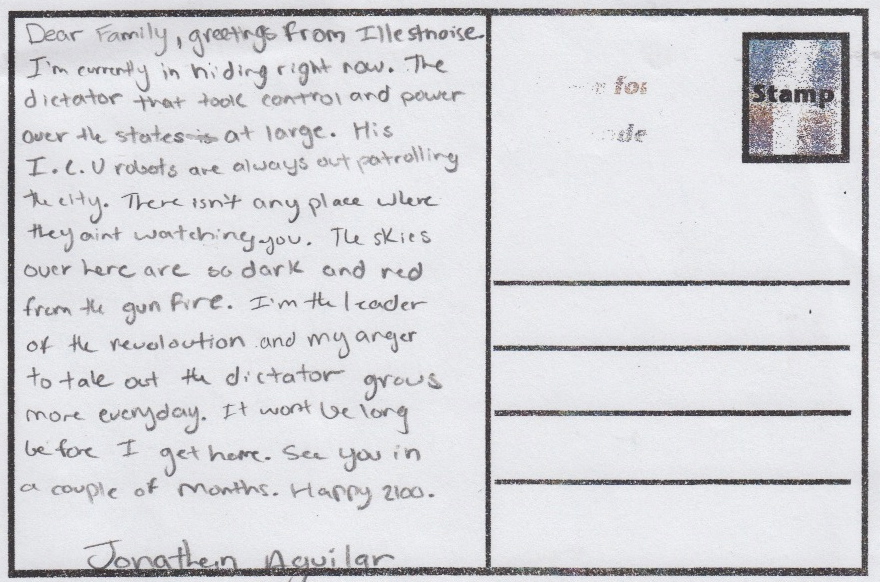 Dear Family, greetings from Illestnoise.
I'm currently in hiding right now. The
dictator that took control and power
over the states is at large. His
I.C.U robots are always out patrolling
the city. There isn't any place where
they aint watching you. The skies
over here are so dark and red
from the gun fire. I'm the leader
of the revoloution and my anger
to take out the dictator grows
more everyday. It wont be long
before I get home. See you in
a couple of months. Happy 2100.
Jonathein Aguilar
for
Stamp